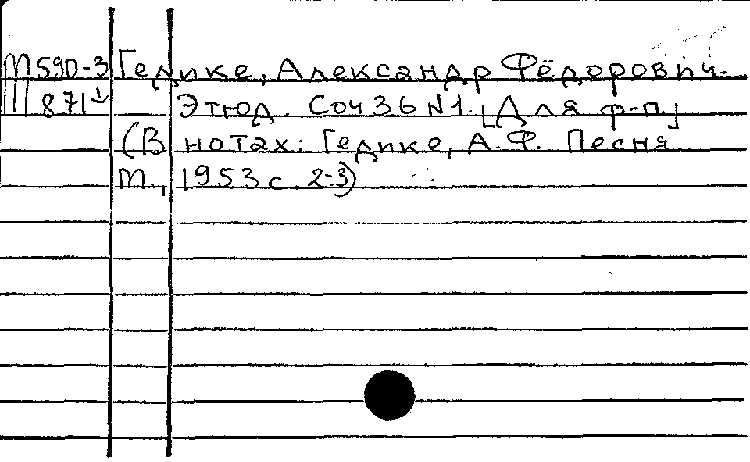 М590-3 Гедике, Александр Фёдорович.
П 871 Этюд. Соч 36 N1. [Для ф-п]
(В нотах: Гедике, А. Ф. Песня
М., 1953 с. 2-3)